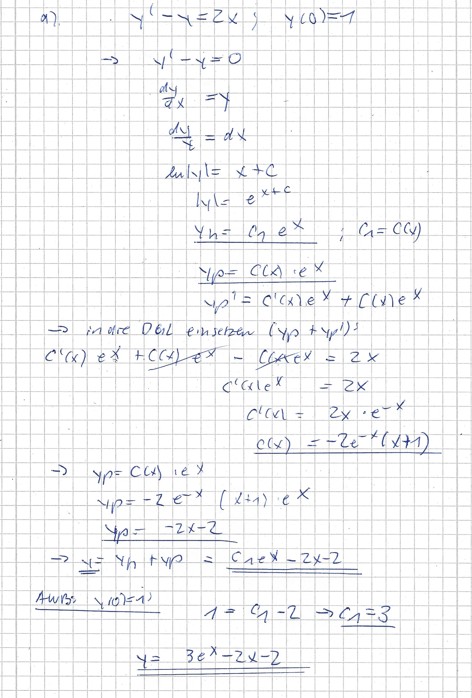 a). y' - y = 2x ; y(0) = 1
→ y' - y = 0
dy/dx = y
dy/y = dx
ln|y| = x + C
|y| = e^(x+C)
yh = C1 e^x ; C1 = C(x)
yp = C(x) · e^x
yp' = C'(x) e^x + C(x) e^x
→ in die DGL einsetzen (yp + yp'):
C'(x) e^x + C(x) e^x - C(x) e^x = 2x
C'(x) e^x = 2x
C'(x) = 2x · e^-x
C(x) = -2e^-x (x+1)
→ yp = C(x) · e^x
yp = -2 e^-x (x+1) · e^x
yp = -2x - 2
→ y = yh + yp = C1 e^x - 2x - 2
AWB: y(0) = 1: 1 = C1 - 2 → C1 = 3
y = 3e^x - 2x - 2